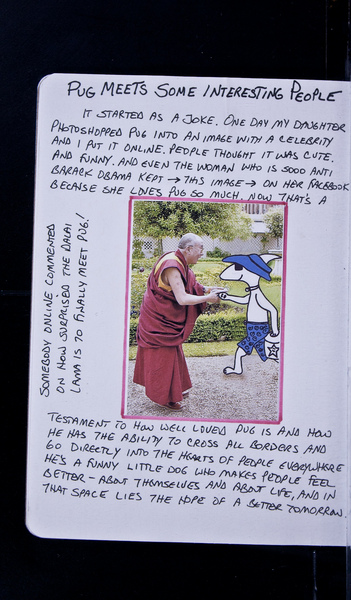 PUG MEETS SOME INTERESTING PEOPLE
IT STARTED AS A JOKE. ONE DAY MY DAUGHTER
PHOTOSHOPPED PUG INTO AN IMAGE WITH A CELEBRITY
AND I PUT IT ONLINE. PEOPLE THOUGHT IT WAS CUTE.
AND FUNNY. AND EVEN THE WOMAN WHO IS SOOO ANTI
BARACK OBAMA KEPT → THIS IMAGE → ON HER FACEBOOK
BECAUSE SHE LOVES PUG SO MUCH. NOW THAT'S A
SOMEBODY ONLINE COMMENTED
ON HOW SURPRISED THE DALAI
LAMA IS TO FINALLY MEET PUG!
TESTAMENT TO HOW WELL LOVED PUG IS AND HOW
HE HAS THE ABILITY TO CROSS ALL BORDERS AND
GO DIRECTLY INTO THE HEARTS OF PEOPLE EVERYWHERE
HE'S A FUNNY LITTLE DOG WHO MAKES PEOPLE FEEL
BETTER - ABOUT THEMSELVES AND ABOUT LIFE, AND IN
THAT SPACE LIES THE HOPE OF A BETTER TOMORROW.